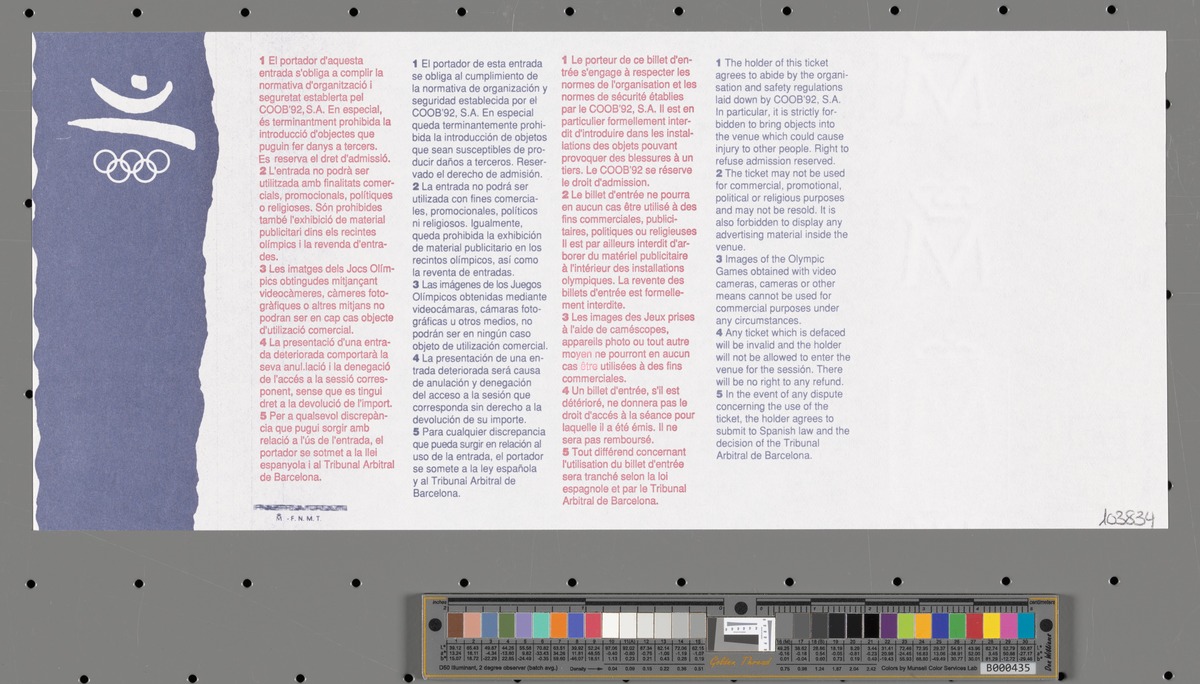 1 El portador d'aquesta
entrada s'obliga a complir la
normativa d'organització i
seguretat establerta pel
COOB'92, S.A. En especial,
és terminantment prohibida la
introducció d'objectes que
puguin fer danys a tercers.
Es reserva el dret d'admissió.
2 L'entrada no podrà ser
utilitzada amb finalitats comer-
cials, promocionals, polítiques
o religioses. Són prohibides
també l'exhibició de material
publicitari dins els recintes
olímpics i la revenda d'entra-
des.
3 Les imatges dels Jocs Olím-
pics obtingudes mitjançant
videocàmeres, càmeres foto-
gràfiques o altres mitjans no
podran ser en cap cas objecte
d'utilizació comercial.
4 La presentació d'una entra-
da deteriorada comportarà la
seva anul.lació i la denegació
de l'accés a la sessió corres-
ponent, sense que es tingui
dret a la devolució de l'import.
5 Per a qualsevol discrepàn-
cia que pugui sorgir amb
relació a l'ús de l'entrada, el
portador se sotmet a la llei
espanyola i al Tribunal Arbitral
de Barcelona.
M - F. N. M. T.
1 El portador de esta entrada
se obliga al cumplimiento de
la normativa de organización y
seguridad establecida por el
COOB'92, S.A. En especial
queda terminantemente prohi-
bida la introducción de objetos
que sean susceptibles de pro-
ducir daños a terceros. Reser-
vado el derecho de admisión.
2 La entrada no podrá ser
utilizada con fines comercia-
les, promocionales, políticos
ni religiosos. Igualmente,
queda prohibida la exhibición
de material publicitario en los
recintos olímpicos, así como
la reventa de entradas.
3 Las imágenes de los Juegos
Olímpicos obtenidas mediante
videocámaras, cámaras foto-
gráficas u otros medios, no
podrán ser en ningún caso
objeto de utilización comercial.
4 La presentación de una en-
trada deteriorada será causa
de anulación y denegación
del acceso a la sesión que
corresponda sin derecho a la
devolución de su importe.
5 Para cualquier discrepancia
que pueda surgir en relación al
uso de la entrada, el portador
se somete a la ley española
y al Tribunal Arbitral de
Barcelona.
1 Le porteur de ce billet d'en-
trée s'engage à respecter les
normes de l'organisation et les
normes de sécurité établies
par le COOB'92, S.A. Il est en
particulier formellement inter-
dit d'introduire dans les instal-
lations des objets pouvant
provoquer des blessures à un
tiers. Le COOB'92 se réserve
le droit d'admission.
2 Le billet d'entrée ne pourra
en aucun cas être utilisé à des
fins commerciales, publici-
taires, politiques ou religieuses
Il est par ailleurs interdit d'ar-
borer du matériel publicitaire
à l'intérieur des installations
olympiques. La revente des
billets d'entrée est formelle-
ment interdite.
3 Les images des Jeux prises
à l'aide de caméscopes,
appareils photo ou tout autre
moyen ne pourront en aucun
cas être utilisées à des fins
commerciales.
4 Un billet d'entrée, s'il est
détérioré, ne donnera pas le
droit d'accés à la séance pour
laquelle il a été émis. Il ne
sera pas remboursé.
5 Tout différend concernant
l'utilisation du billet d'entrée
sera tranché selon la loi
espagnole et par le Tribunal
Arbitral de Barcelona.
1 The holder of this ticket
agrees to abide by the organi-
sation and safety regulations
laid down by COOB'92, S.A.
In particular, it is strictly for-
bidden to bring objects into
the venue which could cause
injury to other people. Right to
refuse admission reserved.
2 The ticket may not be used
for commercial, promotional,
political or religious purposes
and may not be resold. It is
also forbidden to display any
advertising material inside the
venue.
3 Images of the Olympic
Games obtained with video
cameras, cameras or other
means cannot be used for
commercial purposes under
any circumstances.
4 Any ticket which is defaced
will be invalid and the holder
will not be allowed to enter the
venue for the sessión. There
will be no right to any refund.
5 In the event of any dispute
concerning the use of the
ticket, the holder agrees to
submit to Spanish law and the
decision of the Tribunal
Arbitral de Barcelona.
103834
inches
centimeters
Golden Thread
D50 Illuminant, 2 degree observer (batch avg.)
Density
Colors by Munsell Color Services Lab
B000435